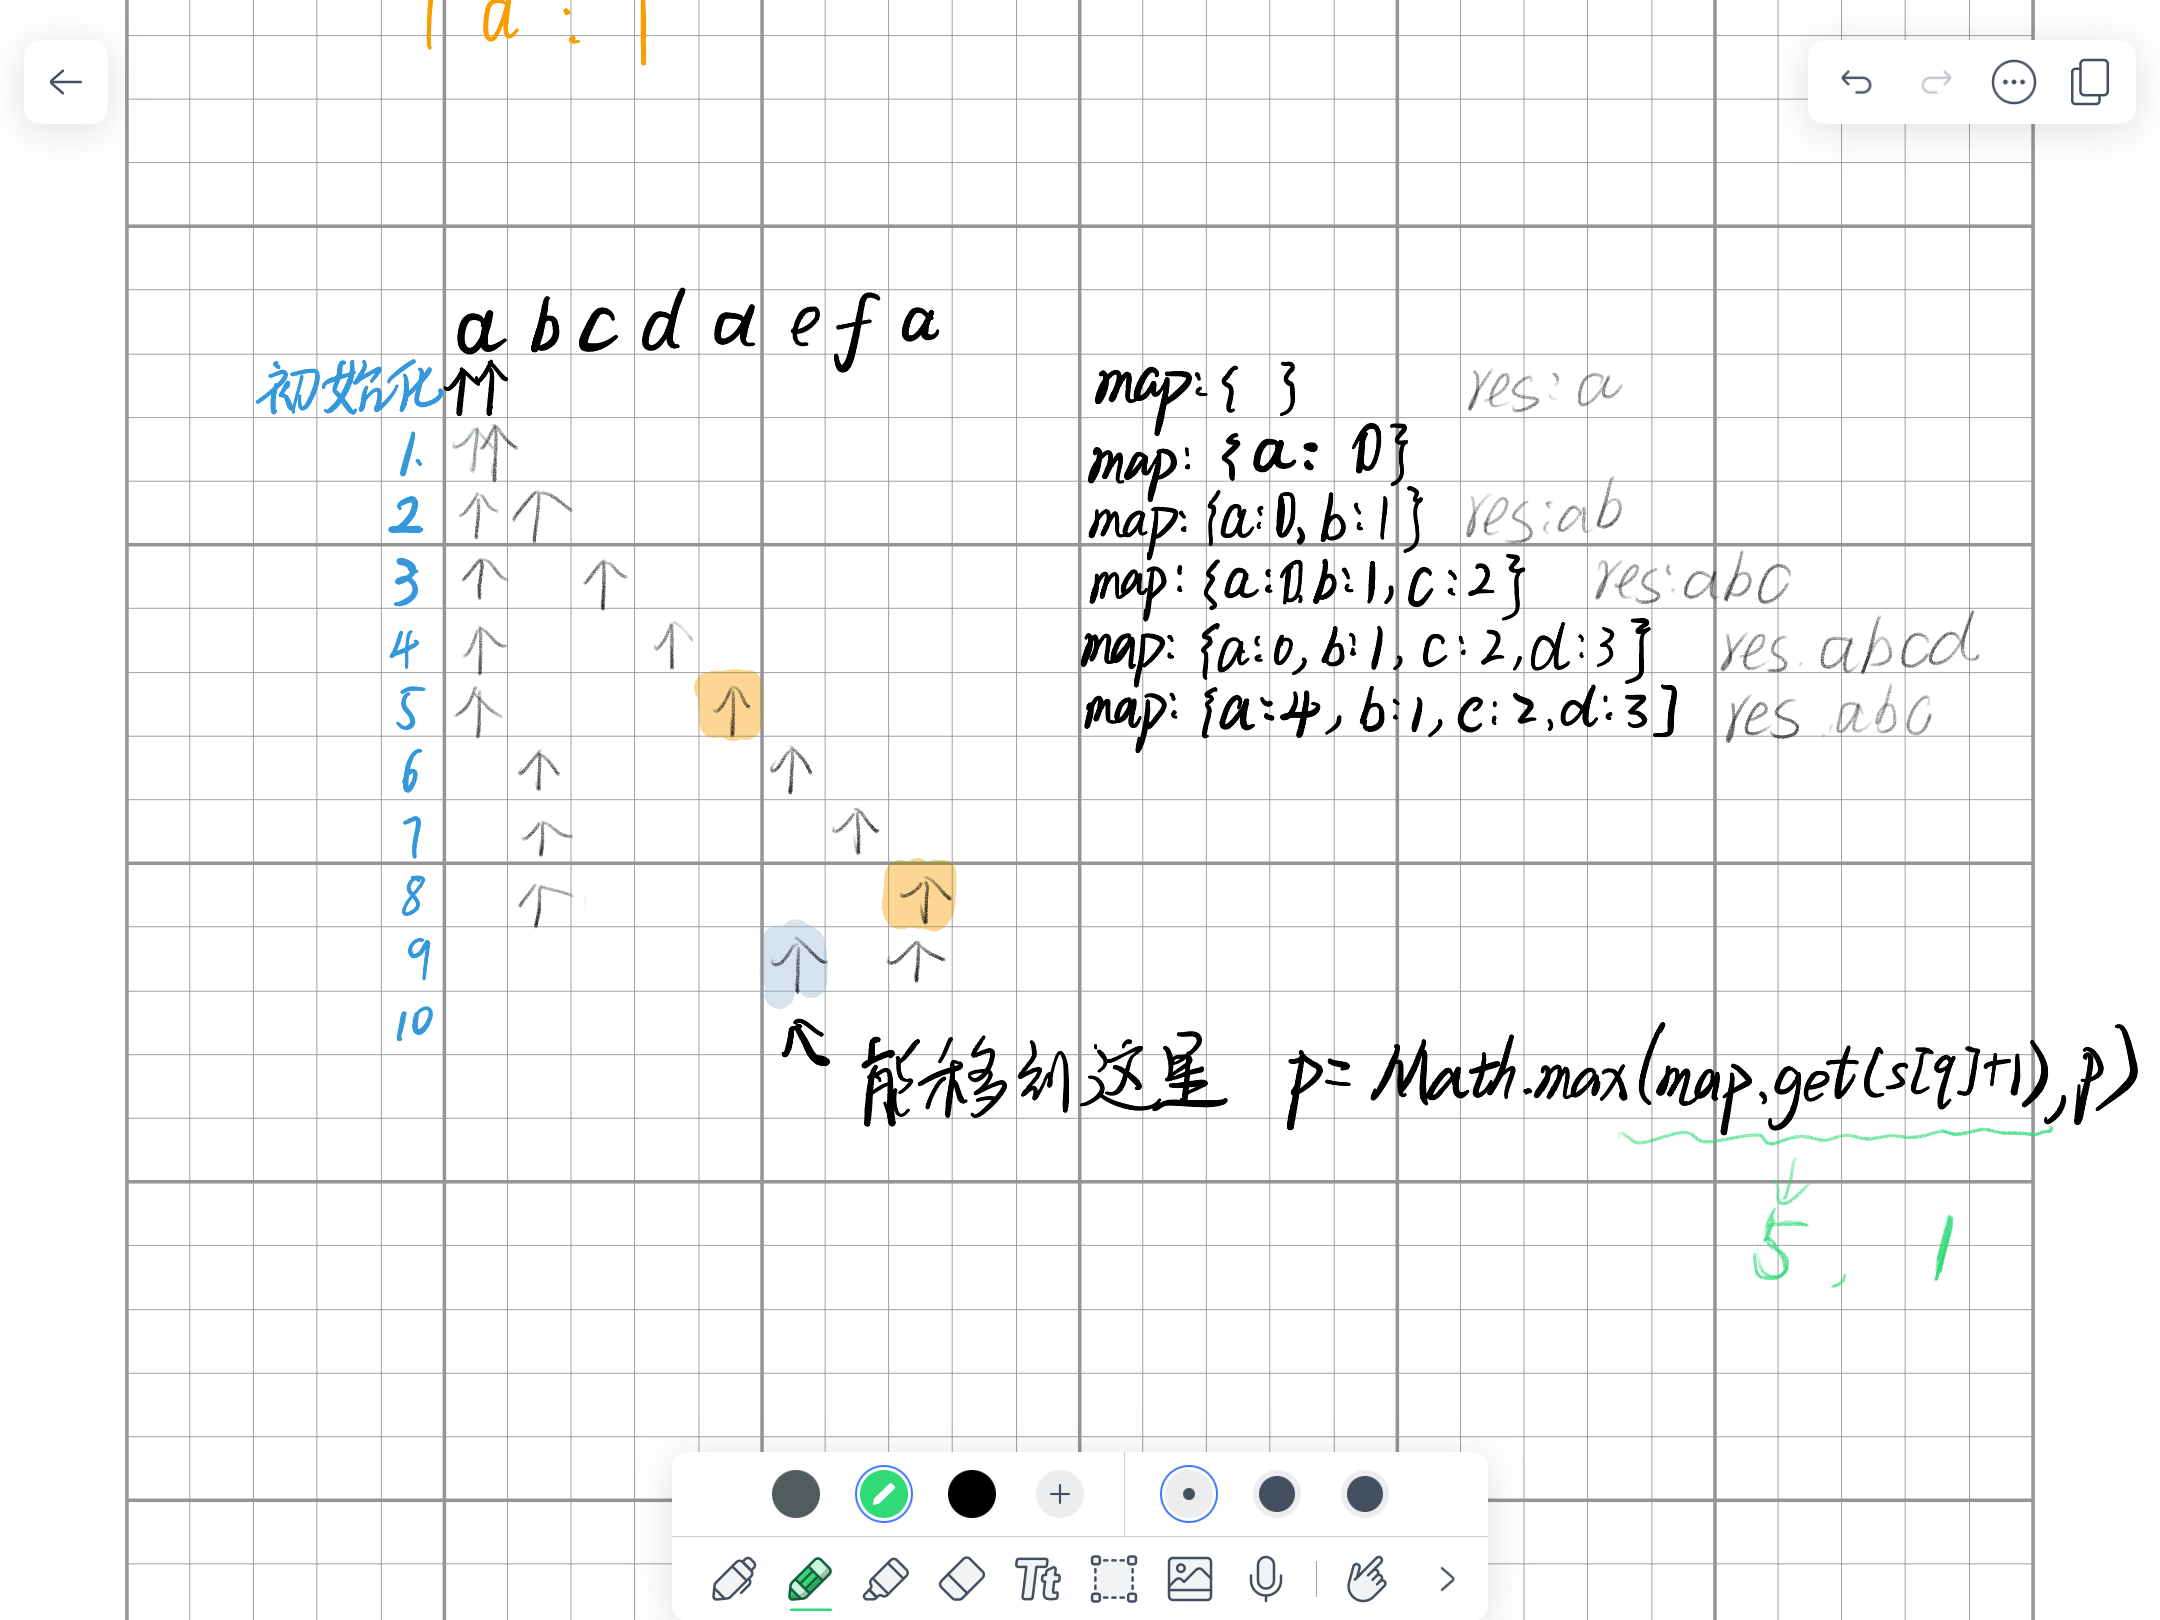 a :
a b c d a e f a
初始化 map:{ } res: a
1. map: {a: 0}
2 map: {a:0, b:1} res:ab
3 map: {a:0 b:1, c:2} res:abc
4 map: {a:0, b:1, c:2, d:3} res. abcd
5 map: {a:4, b:1, c:2, d:3] res abc
6
7
8
9
10
能移到这里 p= Math.max(map.get(s[q]+1), p)
5, 1
Tt